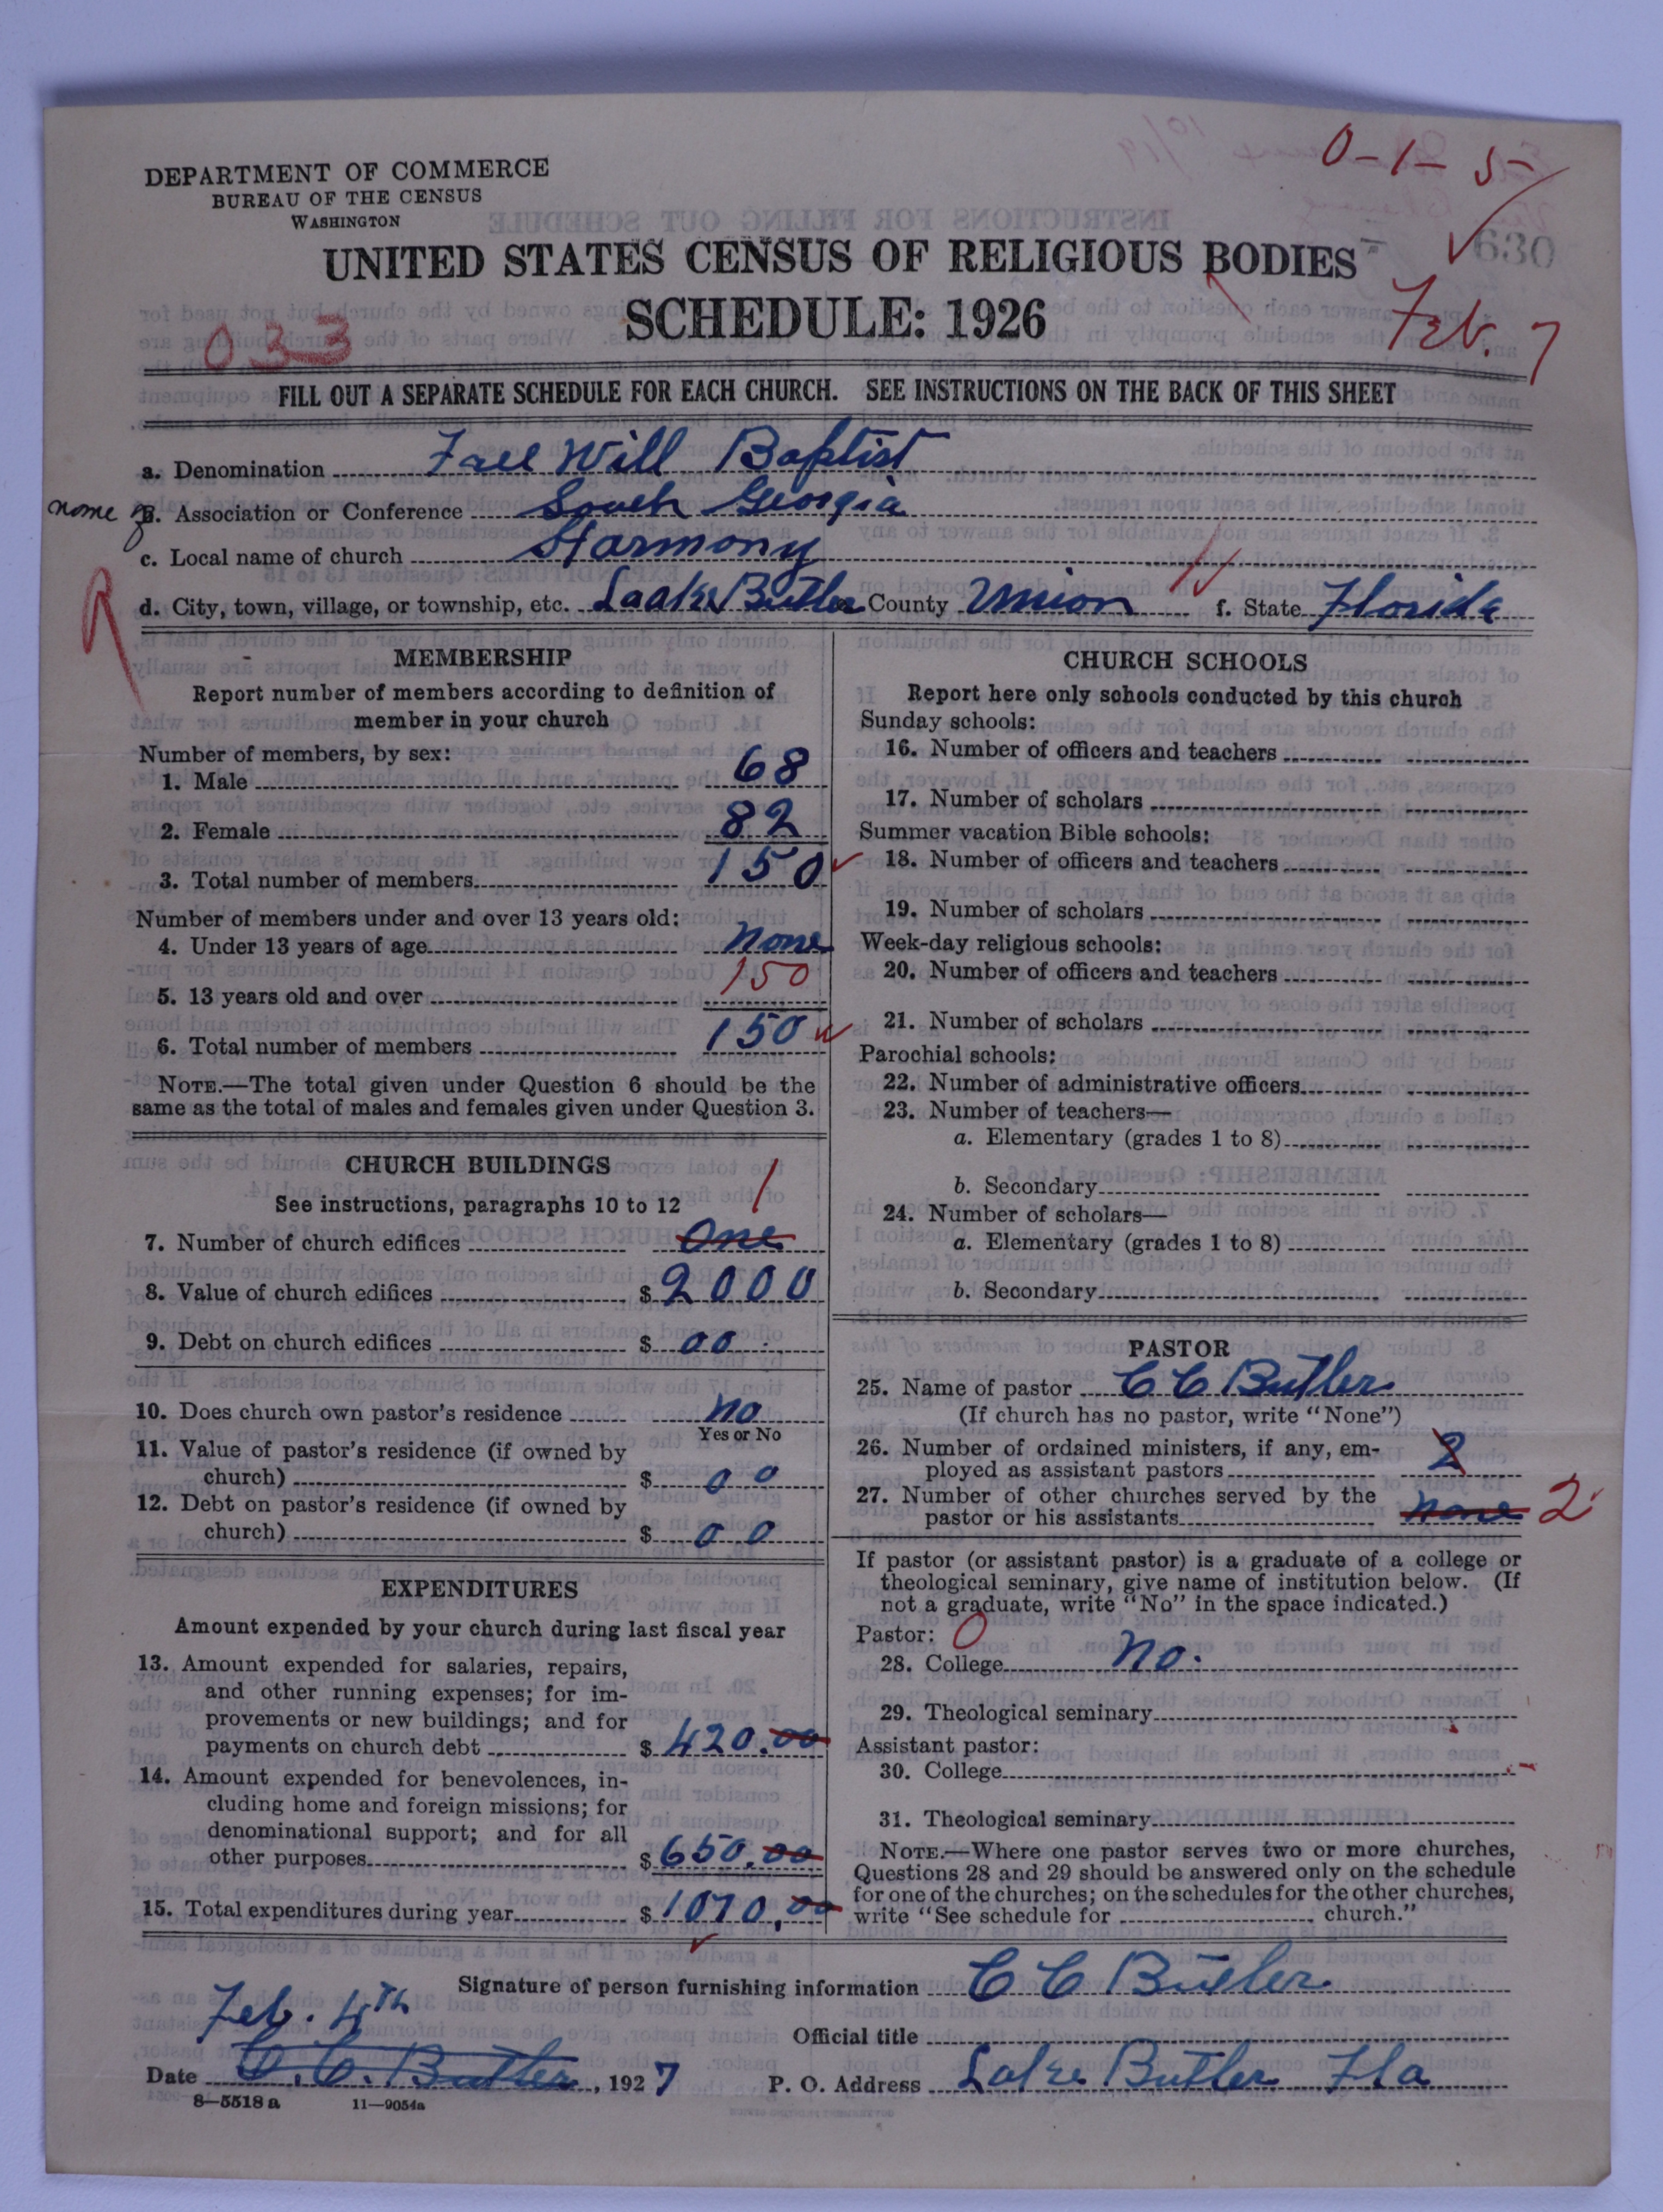 0-1-5
DEPARTMENT OF COMMERCE
BUREAU OF THE CENSUS
WASHINGTON
630
UNITED STATES CENSUS OF RELIGIOUS BODIES
SCHEDULE: 1926
Feb. 7
033
FILL OUT A SEPARATE SCHEDULE FOR EACH CHURCH. SEE INSTRUCTIONS ON THE BACK OF THIS SHEET
a. Denomination Free Will Baptist
name of B. Association or Conference South Georgia
c. Local name of church Harmony
d. City, town, village, or township, etc. Laake Butler County Union f. State Florida
MEMBERSHIP
Report number of members according to definition of
member in your church
Number of members, by sex:
1. Male 68
2. Female 82
3. Total number of members 150
Number of members under and over 13 years old:
4. Under 13 years of age none
5. 13 years old and over 150
6. Total number of members 150
NOTE.—The total given under Question 6 should be the
same as the total of males and females given under Question 3.
CHURCH BUILDINGS
See instructions, paragraphs 10 to 12 1
7. Number of church edifices One
8. Value of church edifices $ 2000
9. Debt on church edifices $ 00
10. Does church own pastor's residence no
Yes or No
11. Value of pastor's residence (if owned by
church) $ 00
12. Debt on pastor's residence (if owned by
church) $ 00
EXPENDITURES
Amount expended by your church during last fiscal year
13. Amount expended for salaries, repairs,
and other running expenses; for im-
provements or new buildings; and for
payments on church debt $ 420.00
14. Amount expended for benevolences, in-
cluding home and foreign missions; for
denominational support; and for all
other purposes $ 650.00
15. Total expenditures during year $ 1070,00
CHURCH SCHOOLS
Report here only schools conducted by this church
Sunday schools:
16. Number of officers and teachers
17. Number of scholars
Summer vacation Bible schools:
18. Number of officers and teachers
19. Number of scholars
Week-day religious schools:
20. Number of officers and teachers
21. Number of scholars
Parochial schools:
22. Number of administrative officers
23. Number of teachers—
a. Elementary (grades 1 to 8)
b. Secondary
24. Number of scholars—
a. Elementary (grades 1 to 8)
b. Secondary
PASTOR
25. Name of pastor C C Butler
(If church has no pastor, write "None")
26. Number of ordained ministers, if any, em-
ployed as assistant pastors 2
27. Number of other churches served by the
pastor or his assistants none 2
If pastor (or assistant pastor) is a graduate of a college or
theological seminary, give name of institution below. (If
not a graduate, write "No" in the space indicated.)
Pastor: 0
28. College No.
29. Theological seminary
Assistant pastor:
30. College
31. Theological seminary
NOTE.—Where one pastor serves two or more churches,
Questions 28 and 29 should be answered only on the schedule
for one of the churches; on the schedules for the other churches,
write "See schedule for church."
Signature of person furnishing information C C Butler
Feb. 4th
Official title
Date C. C. Butler, 1927
P. O. Address Lake Butler Fla
8—5518 a 11—9054a